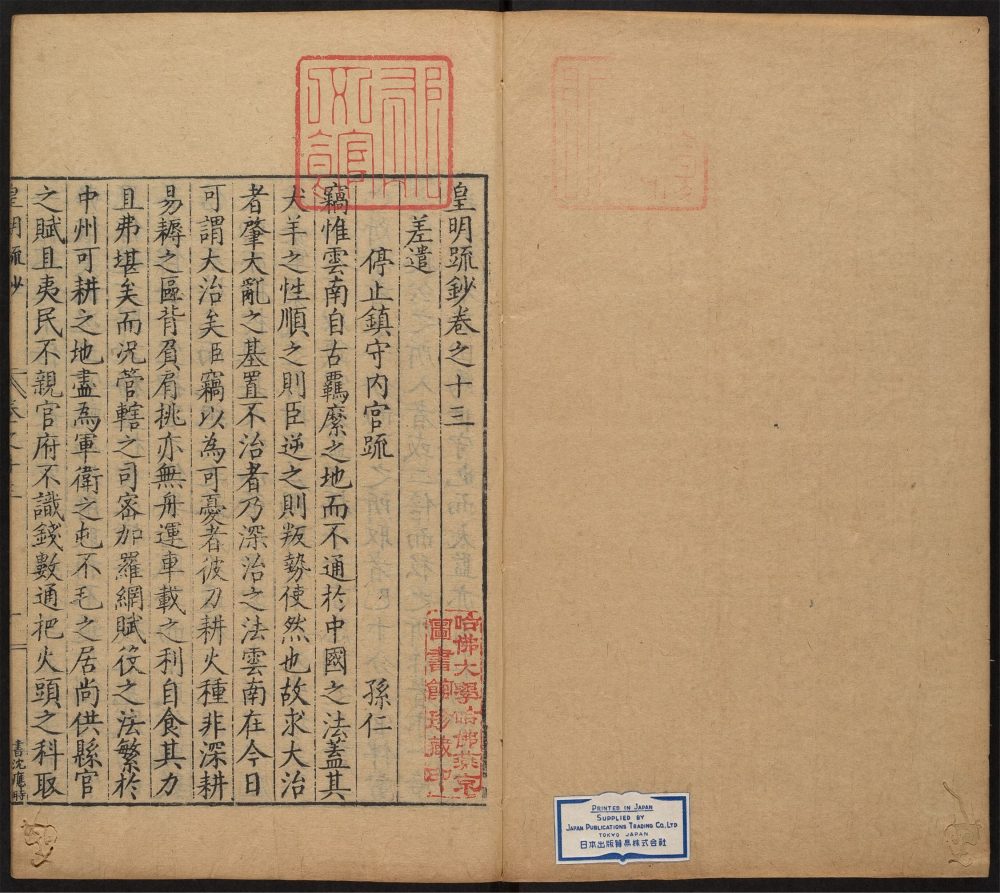 皇明疏鈔卷之十三
差遣
停止鎮守内官疏
孫仁
竊惟雲南自古羈縻之地而不通於中國之法蓋其
犬羊之性順之則臣逆之則叛勢使然也故求大治
者肇大亂之基置不治者乃深治之法雲南在今日
可謂大治矣臣竊以為可憂者彼刀耕火種非深耕
易耨之區背負肩挑亦無舟運車載之利自食其力
且弗堪矣而况管轄之司密加羅網賦役之法繁於
中州可耕之地盡為軍衛之屯不毛之居尚供縣官
之賦且夷民不親官府不識錢數通把火頭之科取
皇明疏鈔
卷之十三
一
書沈應時
哈佛大學哈佛燕京
圖書館珍藏印
PRINTED IN JAPAN
SUPPLIED BY
JAPAN PUBLICATIONS TRADING CO., LTD
TOKYO JAPAN
日本出版貿易株式会社